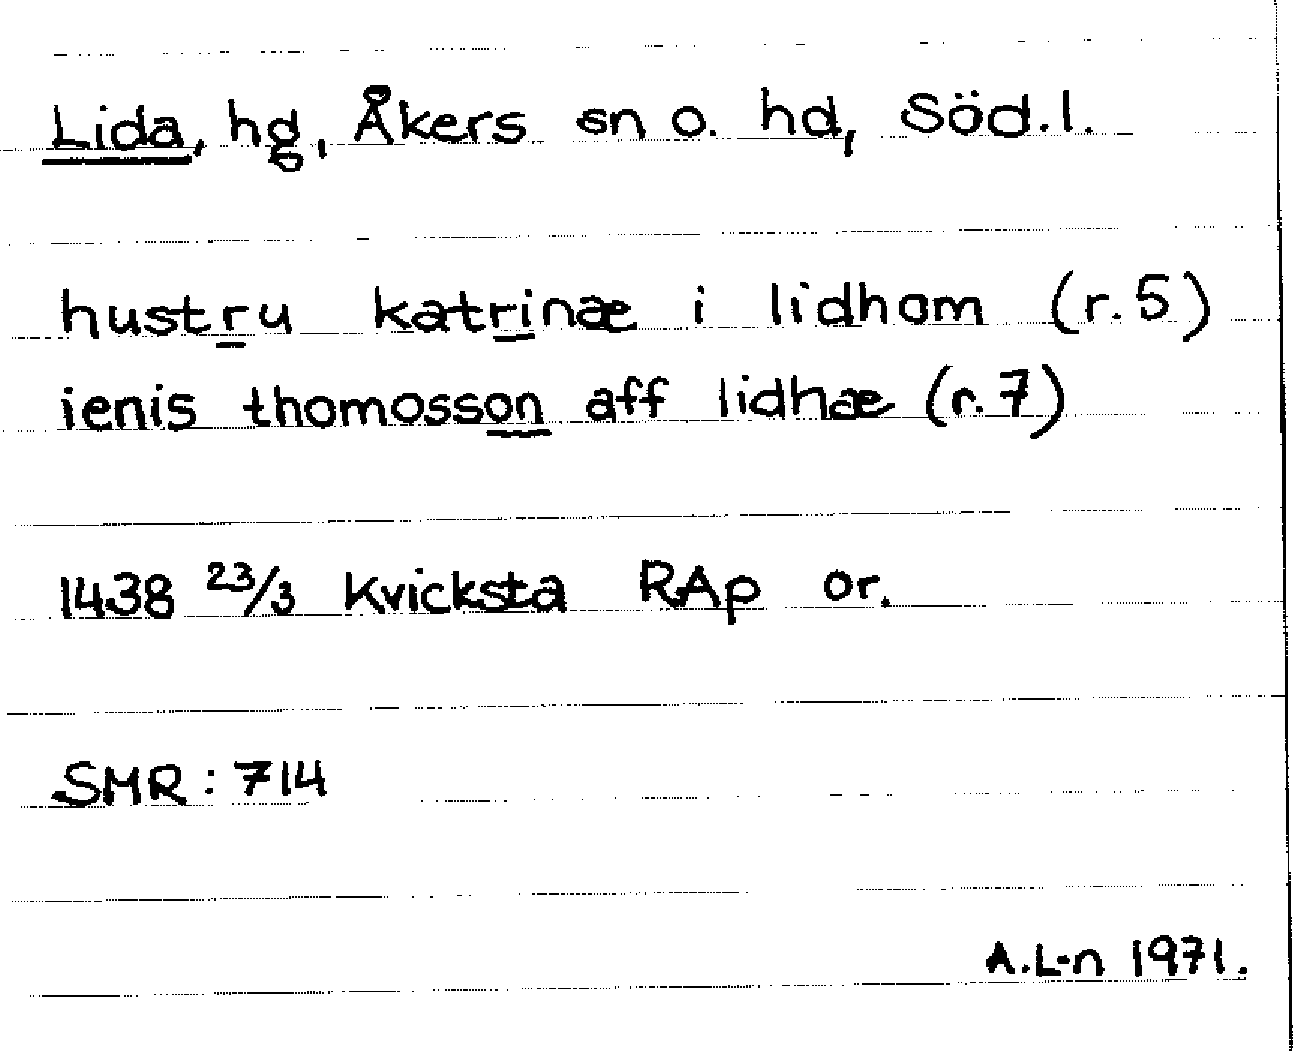 Lida, hg, Åkers sn o. hd, Söd.l.
hustru katrinæ i lidhom (r.5)
ienis thomosson aff lidhæ (r.7)
1438 23/3 Kvicksta RAp or.
SMR: 714
A.L-n 1971.